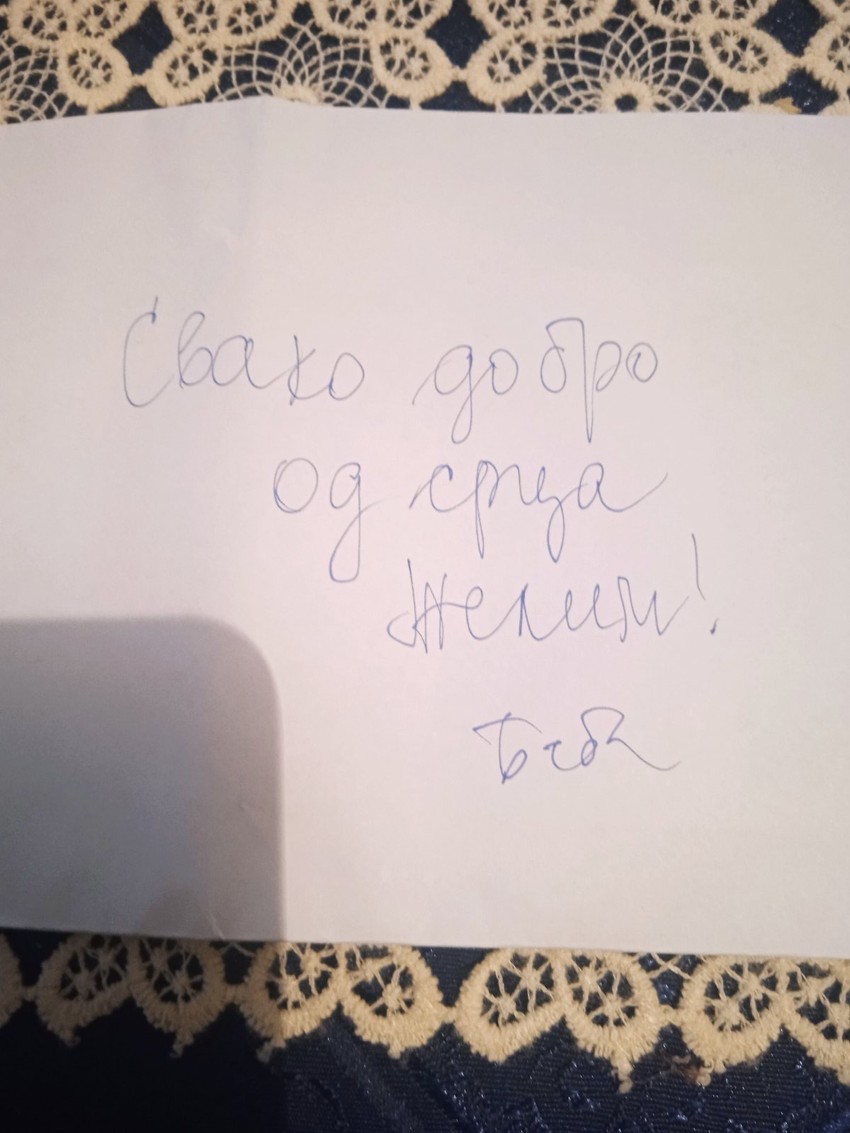 Свако добро
од срца
желим!